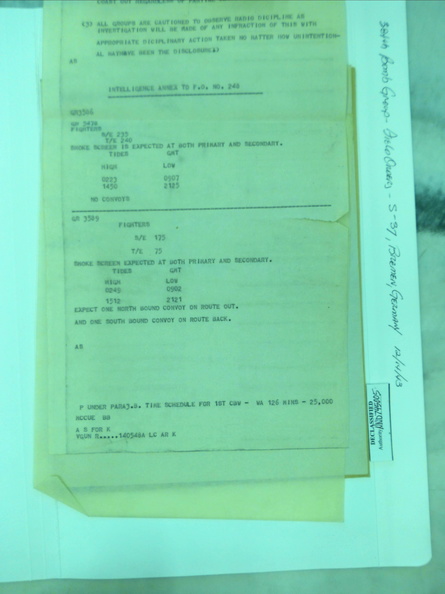 5) ALL GROUPS ARE CAUTIONED TO OBSERVE RADIO DICIPLINE AS
INVESTIGATION WILL BE MADE OF ANY INFRACTION OF THIS WITH
APPROPRIATE DICIPLINARY ACTION TAKEN NO MATTER HOW UNINTENTION-
AL
AR
INTELLIGENCE ANNEX TO F.O. NO. 240
FIGHTERS
S/E 235
T/E 240
SMOKE SCREEN IS EXPECTED AT BOTH PRIMARY AND SECONDARY.
TIDES GMT
HIGH LOW
0223 0907
1450 2125
NO CONVOYS
GR 3529
FIGHTERS
S/E 175
T/E 75
SMOKE SCREEN EXPECTED AT BOTH PRIMARY AND SECONDARY.
TIDES GMT
HIGH LOW
0249 0902
1512 2121
EXPECT ONE NORTH BOUND CONVOY ON ROUTE OUT.
AND ONE SOUTH BOUND CONVOY ON ROUTE BACK.
AR
P UNDER PARA3.G. TIME SCHEDULE FOR 1ST CBW - WA 126 MINS - 25,000
A B FOR K
140546A LG AR K
384th Bomb Group - Field Orders - S-37, Bremen, Germany 12/14/43
DECLASSIFIED